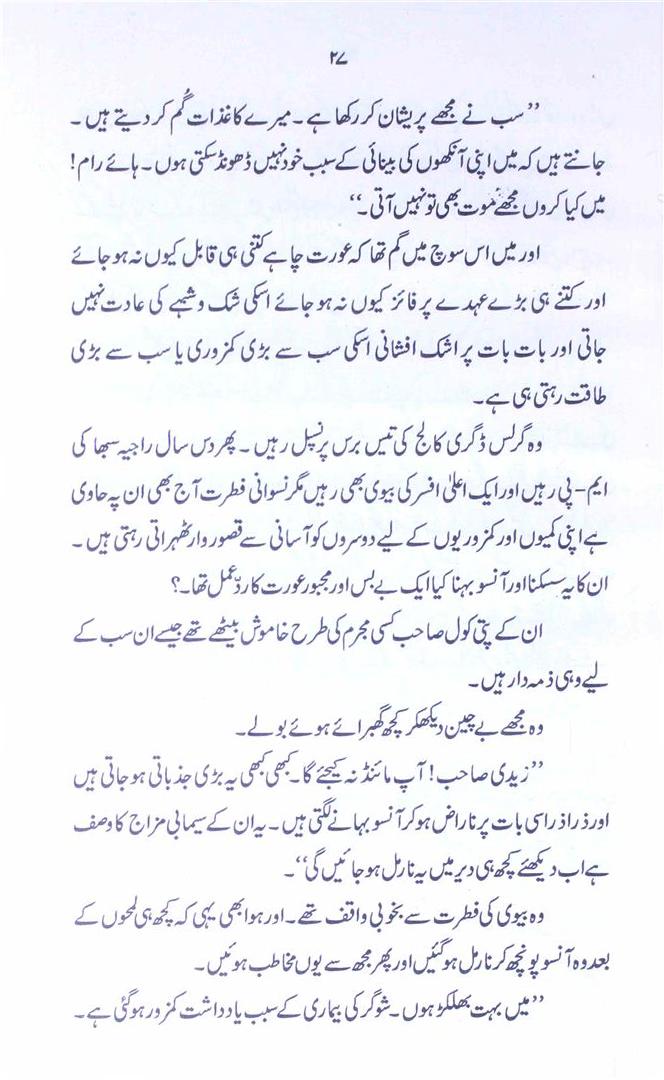 ۲۷
’’سب نے مجھے پریشان کر رکھا ہے۔ میرے کاغذات گُم کر دیتے ہیں۔
جانتے ہیں کہ میں اپنی آنکھوں کی بینائی کے سبب خود نہیں ڈھونڈ سکتی ہوں۔ ہائے رام!
میں کیا کروں مجھے موت بھی تو نہیں آتی۔‘‘
اور میں اس سوچ میں گم تھا کہ عورت چاہے کتنی ہی قابل کیوں نہ ہو جائے
اور کتنے ہی بڑے عہدے پر فائز کیوں نہ ہو جائے اسکی شک و شبہے کی عادت نہیں
جاتی اور بات بات پر اشک افشانی اسکی سب سے بڑی کمزوری یا سب سے بڑی
طاقت رہتی ہی ہے۔
وہ گرلس ڈگری کالج کی تیس برس پرنسپل رہیں۔ پھر دس سال راجیہ سبھا کی
ایم-پی رہیں اور ایک اعلیٰ افسر کی بیوی بھی رہیں مگر نسوانی فطرت آج بھی ان پہ حاوی
ہے اپنی کمیوں اور کمزوریوں کے لیے دوسروں کو آسانی سے قصوروار ٹھہراتی رہتی ہیں۔
ان کا یہ سسکنا اور آنسو بہنا کیا ایک بے بس اور مجبور عورت کا ردِّ عمل تھا۔؟
ان کے پتی کول صاحب کسی مجرم کی طرح خاموش بیٹھے تھے جیسے ان سب کے
لیے وہی ذمہ دار ہیں۔
وہ مجھے بے چین دیکھکر کچھ گھبرائے ہوئے بولے۔
’’زیدی صاحب! آپ مائنڈ نہ کیجئے گا۔ کبھی کبھی یہ بڑی جذباتی ہو جاتی ہیں
اور ذرا ذرا سی بات پر ناراض ہو کر آنسو بہانے لگتی ہیں۔ یہ ان کے سیمابی مزاج کا وصف
ہے اب دیکھئے کچھ ہی دیر میں یہ نارمل ہو جائیں گی‘‘۔
وہ بیوی کی فطرت سے بخوبی واقف تھے۔ اور ہوا بھی یہی کہ کچھ ہی لمحوں کے
بعد وہ آنسو پونچھ کر نارمل ہو گئیں اور پھر مجھ سے یوں مخاطب ہوئیں۔
’’میں بہت بھلکڑ ہوں۔ شوگر کی بیماری کے سبب یادداشت کمزور ہو گئی ہے۔